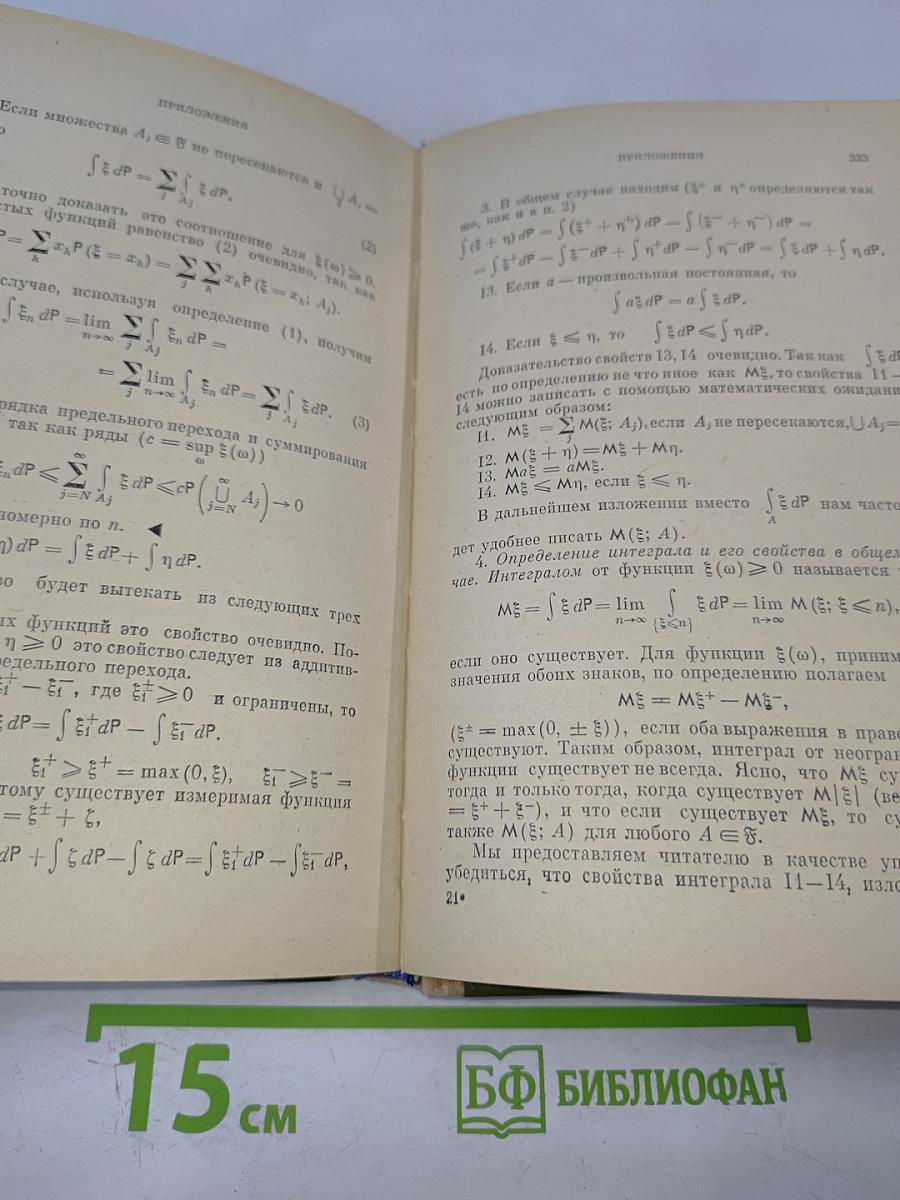 ПРИЛОЖЕНИЯ
Если множества A_j ∈ 𝔉 не пересекаются и ⋃_j A_j =
∫ ξ dP = ∑_j ∫_{A_j} ξ dP. (2)
точно доказать это соотношение для ξ(ω) ⩾ 0.
функций равенство (2) очевидно, так как
P = ∑_k x_k P(ξ = x_k) = ∑_j ∑_k x_k P(ξ = x_k; A_j).
случае, используя определение (1), получим
∫ ξ_n dP = lim_{n→∞} ∑_j ∫_{A_j} ξ_n dP =
= ∑_j lim_{n→∞} ∫_{A_j} ξ_n dP = ∑_j ∫_{A_j} ξ dP. (3)
предельного перехода и суммирования
так как ряды (c = sup_ω ξ(ω))
ξ_n dP ⩽ ∑_{j=N}^∞ ∫_{A_j} ξ dP ⩽ cP(⋃_{j=N}^∞ A_j) → 0
номерно по n. ◀
η) dP = ∫ ξ dP + ∫ η dP.
во будет вытекать из следующих трех
ых функций это свойство очевидно. По-
η ⩾ 0 это свойство следует из аддитив-
редельного перехода.
ξ₁⁺ − ξ₁⁻, где ξ₁^± ⩾ 0 и ограничены, то
ξ dP = ∫ ξ₁⁺ dP − ∫ ξ₁⁻ dP.
ξ₁⁺ ⩾ ξ⁺ = max (0, ξ), ξ₁⁻ ⩾ ξ⁻ =
тому существует измеримая функция
= ξ^± + ζ,
dP + ∫ ζ dP − ∫ ζ dP = ∫ ξ₁⁺ dP − ∫ ξ₁⁻ dP,
ПРИЛОЖЕНИЯ 323
3. В общем случае находим (ξ^± и η^± определяются так
же, как и в п. 2)
∫ (ξ + η) dP = ∫ (ξ⁺ + η⁺) dP − ∫ (ξ⁻ + η⁻) dP =
= ∫ ξ⁺ dP − ∫ ξ⁻ dP + ∫ η⁺ dP − ∫ η⁻ dP = ∫ ξ dP + ∫ η dP.
I3. Если a — произвольная постоянная, то
∫ aξ dP = a ∫ ξ dP.
I4. Если ξ ⩽ η, то ∫ ξ dP ⩽ ∫ η dP.
Доказательство свойств I3, I4 очевидно. Так как ∫ ξ dP
есть по определению не что иное как Mξ, то свойства I1—
I4 можно записать с помощью математических ожидани
следующим образом:
I1. Mξ = ∑_j M(ξ; A_j), если A_j не пересекаются, ⋃ A_j =
I2. M(ξ + η) = Mξ + Mη.
I3. Maξ = aMξ.
I4. Mξ ⩽ Mη, если ξ ⩽ η.
В дальнейшем изложении вместо ∫_A ξ dP нам часто
дет удобнее писать M(ξ; A).
4. Определение интеграла и его свойства в общем
чае. Интегралом от функции ξ(ω) ⩾ 0 называется
Mξ = ∫ ξ dP = lim_{n→∞} ∫_{{ξ⩽n}} ξ dP = lim_{n→∞} M(ξ; ξ ⩽ n),
если оно существует. Для функции ξ(ω), приним
значения обоих знаков, по определению полагаем
Mξ = Mξ⁺ − Mξ⁻,
(ξ^± = max (0, ± ξ)), если оба выражения в право
существуют. Таким образом, интеграл от неогран
функции существует не всегда. Ясно, что Mξ су
тогда и только тогда, когда существует M|ξ| (ве
= ξ⁺ + ξ⁻), и что если существует Mξ, то су
также M(ξ; A) для любого A ∈ 𝔉.
Мы предоставляем читателю в качестве уп
убедиться, что свойства интеграла I1—I4, изло
21*
15 см
БФ БИБЛИОФАН